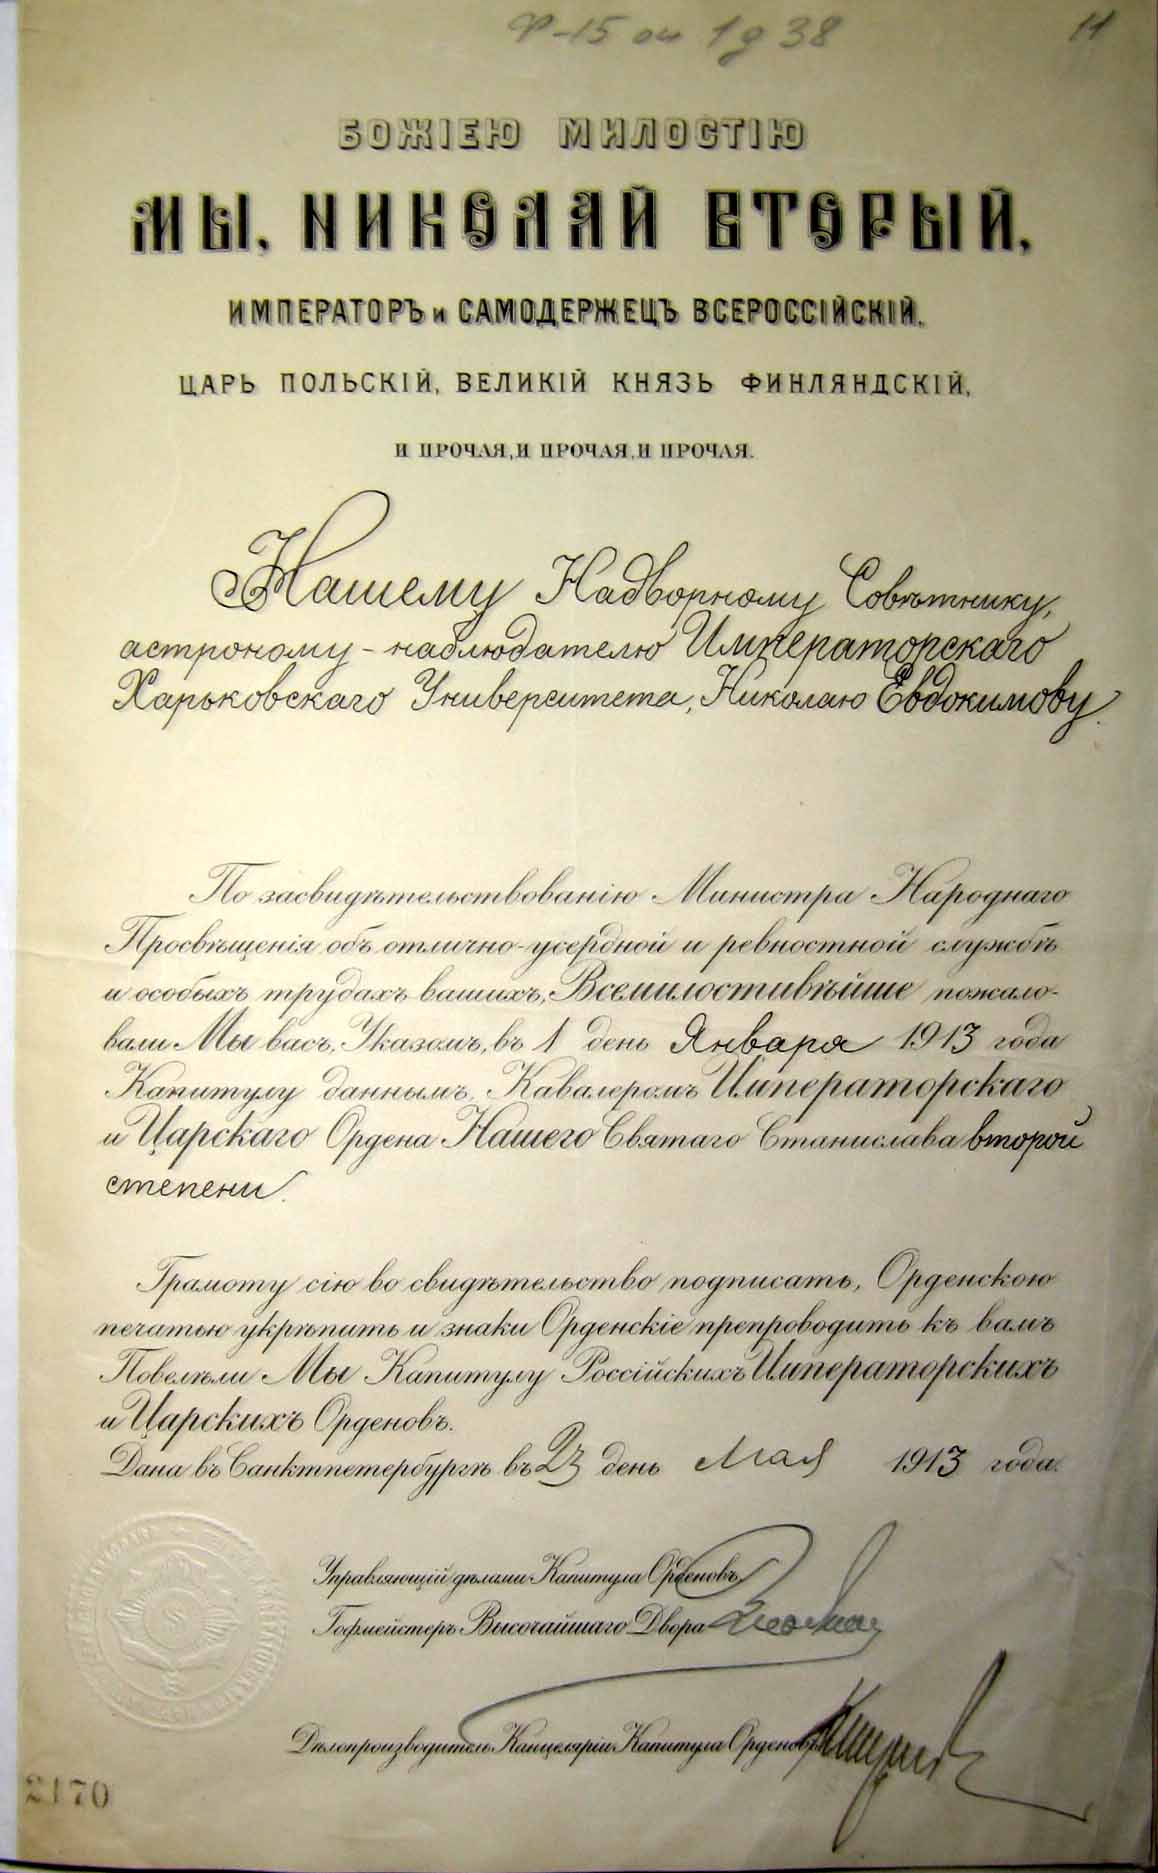 Ф-15 оп 1 д 38
11
БОЖІЕЮ МИЛОСТІЮ
МЫ, НИКОЛАЙ ВТОРЫЙ,
ИМПЕРАТОРЪ и САМОДЕРЖЕЦЪ ВСЕРОССІЙСКІЙ,
ЦАРЬ ПОЛЬСКІЙ, ВЕЛИКІЙ КНЯЗЬ ФИНЛЯНДСКІЙ,
И ПРОЧАЯ, И ПРОЧАЯ, И ПРОЧАЯ.
Нашему Надворному Совѣтнику,
астроному-наблюдателю Императорскаго
Харьковскаго Университета, Николаю Евдокимову.
По засвидѣтельствованію Министра Народнаго
Просвѣщенія объ отлично-усердной и ревностной службѣ
и особыхъ трудахъ вашихъ, Всемилостивѣйше пожало-
вали Мы васъ, Указомъ, въ 1 день Января 1913 года
Капитулу даннымъ, Кавалеромъ Императорскаго
и Царскаго Ордена Нашего Святаго Станислава второй
степени.
Грамоту сію во свидѣтельство подписать, Орденскою
печатью укрѣпить и знаки Орденскіе препроводить къ вамъ
Повелѣли Мы Капитулу Россійскихъ Императорскихъ
и Царскихъ Орденовъ.
Дана въ Санктпетербургѣ въ 23 день Мая 1913 года.
Управляющій дѣлами Капитула Орденовъ,
Гофмейстеръ Высочайшаго Двора
Дѣлопроизводитель Канцеляріи Капитула Орденовъ
2170